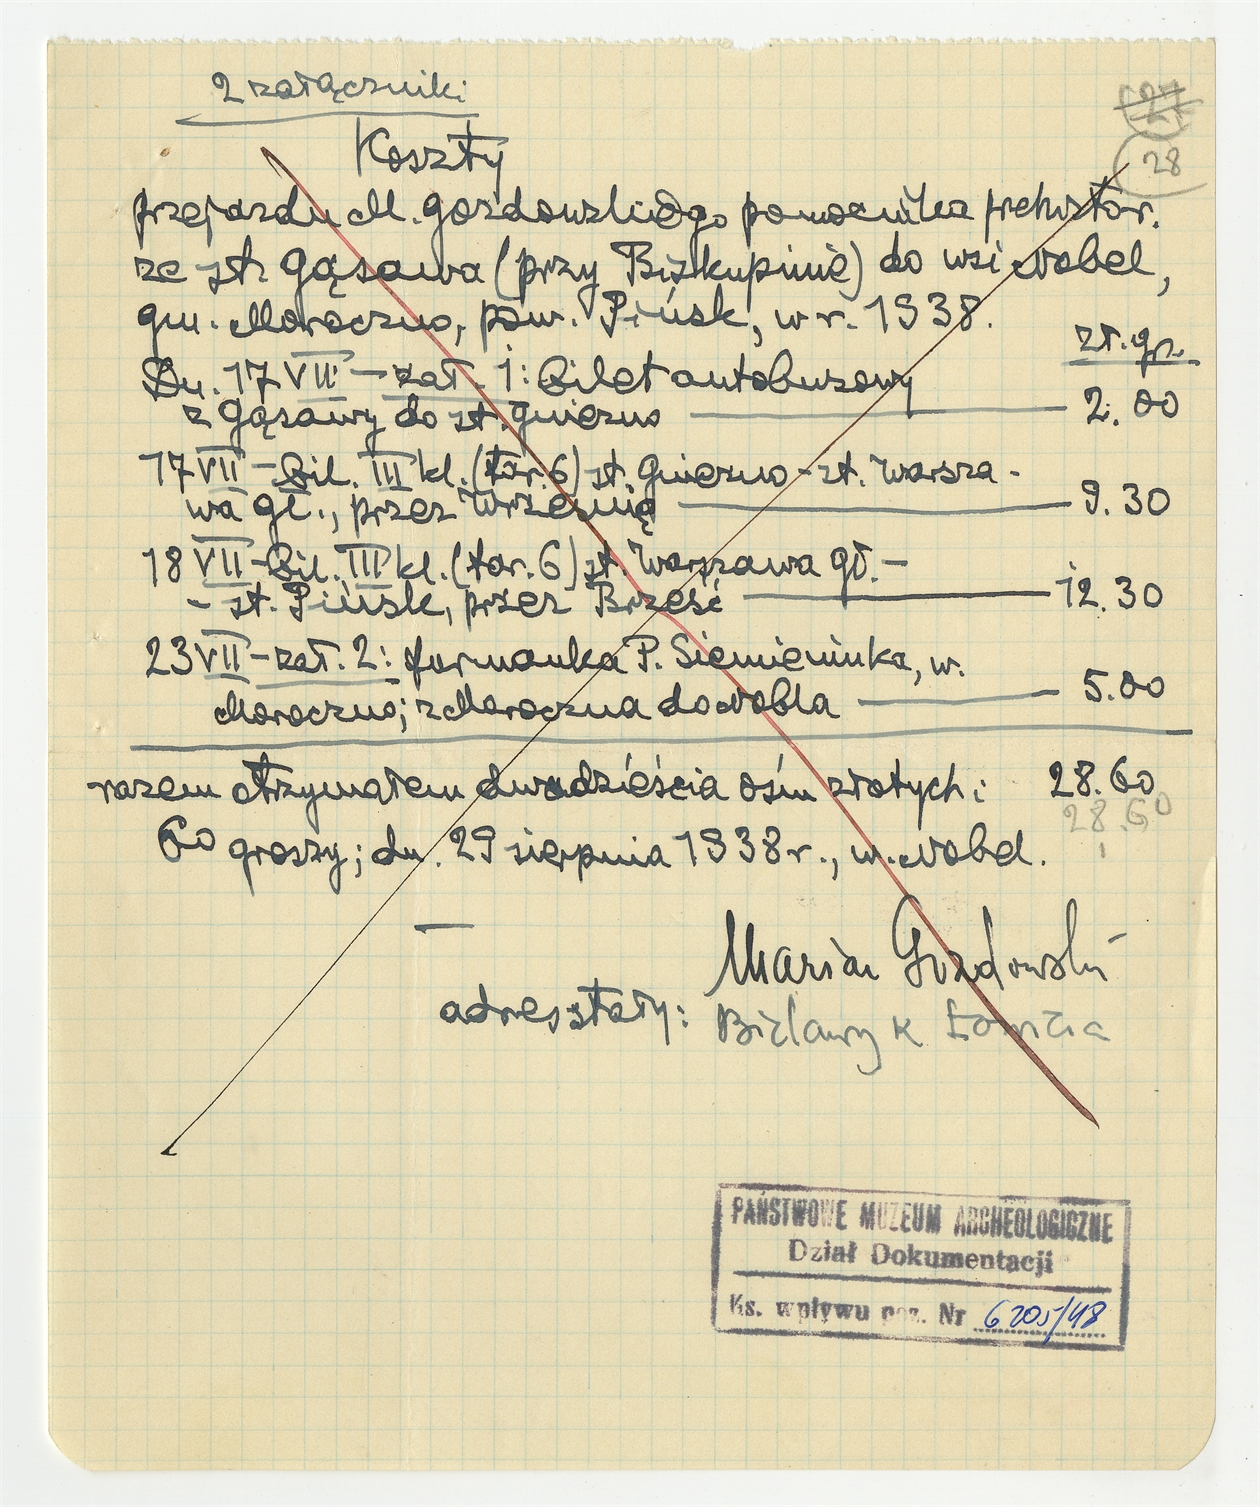 2 załączniki
27
28
Koszty
przejazdu M. Gozdowskiego pomocnika prehistor.
ze st. Gąsawa (przy Biskupinie) do wsi Nobel,
gm. Moroczno, pow. Pińsk, w r. 1938.
zł. gr.
Dn. 17 VII – zał. 1: Bilet autobusowy
z Gąsawy do st. Gniezno — 2.00
17 VII – Bil. III kl. (tar. 6) st. Gniezno – st. Warsza-
wa gł., przez Wrześnię — 9.30
18 VII – Bil. III kl. (tar. 6) st. Warszawa gł. –
– st. Pińsk, przez Brześć — 12.30
23 VII – zał. 2: furmanka P. Siemieniuka, w.
Moroczno; z Moroczna do Nobla — 5.00
razem otrzymałem dwadzieścia ośm złotych i 28.60
28.60
60 groszy; dn. 29 sierpnia 1938 r., w. Nobel.
Marian Gozdowski
adres stały: Bielawy k Łowicza
PAŃSTWOWE MUZEUM ARCHEOLOGICZNE
Dział Dokumentacji
Ks. wpływu poz. Nr 6205/48